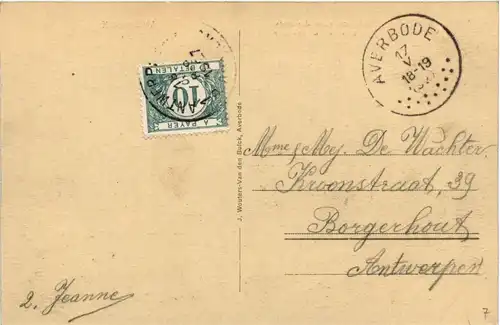 AVERBODE
17
V
18-19
ANTWERP
TE BETALEN
10
A PAYER
J. Wouters-Van den Bulck, Averbode
Mme & Mej. De Wachter
Kroonstraat, 39
Borgerhout
Antwerpen
2. Jeanne
7